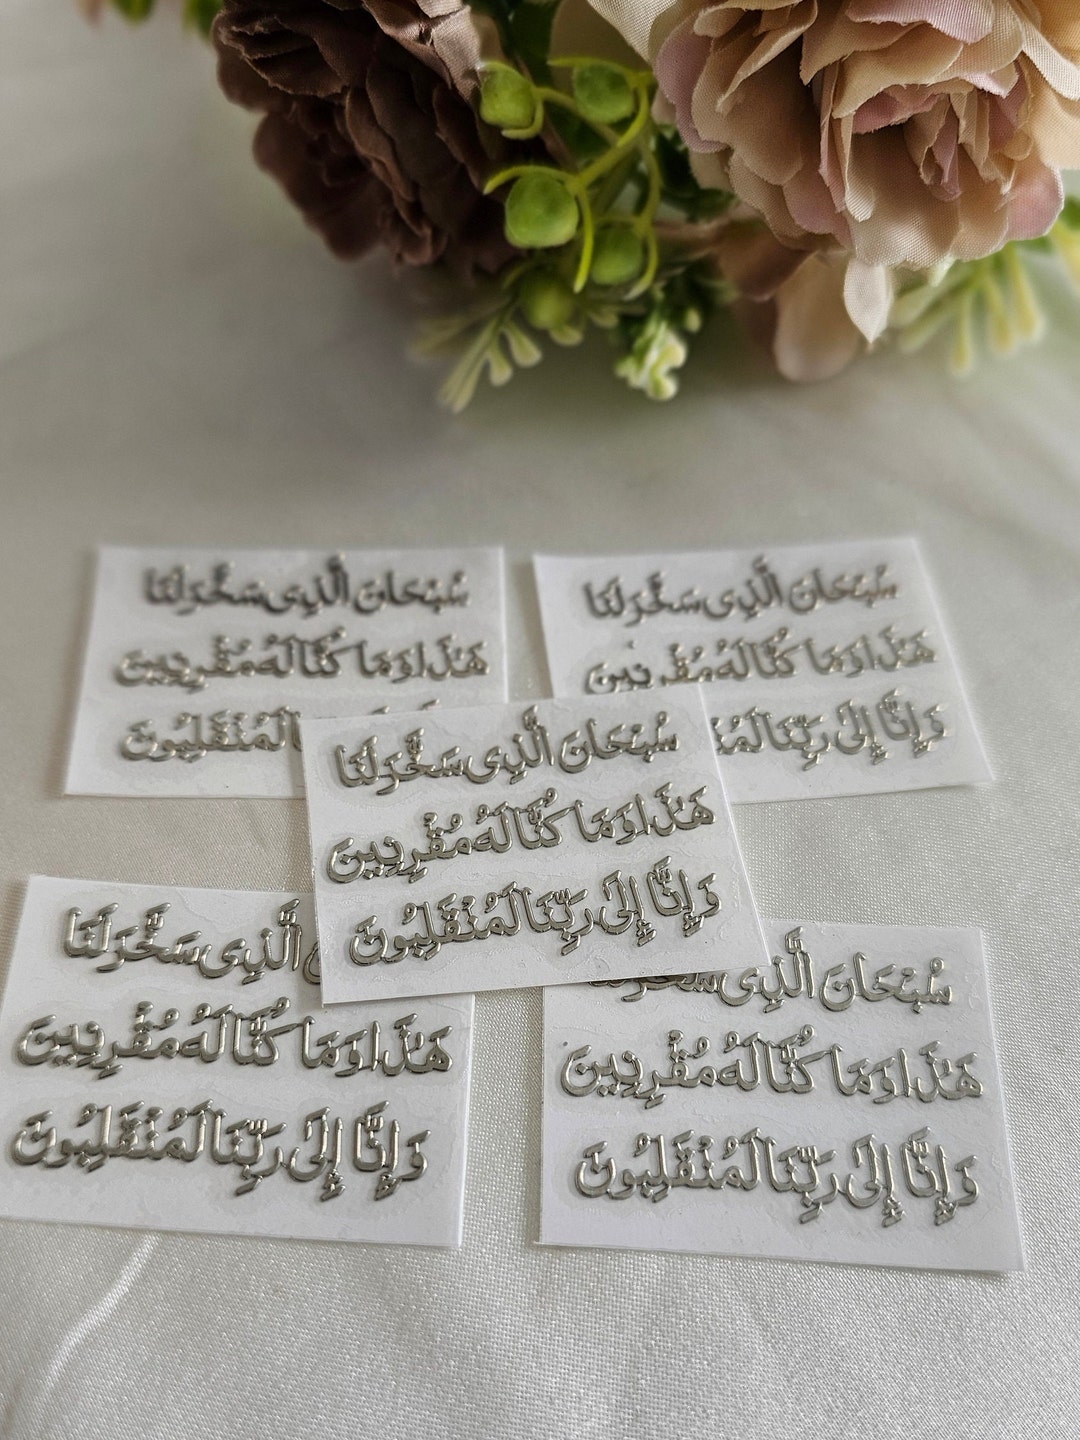 سُبْحَانَ الَّذِى سَخَّرَ لَنَا
هَٰذَا وَمَا كُنَّا لَهُ مُقْرِنِينَ
وَإِنَّا إِلَىٰ رَبِّنَا
سُبْحَانَ الَّذِى سَخَّرَ لَنَا
هَٰذَا وَمَا كُنَّا لَهُ مُقْرِنِينَ
لَمُنْقَلِبُونَ
سُبْحَانَ الَّذِى سَخَّرَ لَنَا
هَٰذَا وَمَا كُنَّا لَهُ مُقْرِنِينَ
وَإِنَّا إِلَىٰ رَبِّنَا لَمُنْقَلِبُونَ
سُبْحَانَ الَّذِى
هَٰذَا وَمَا كُنَّا لَهُ مُقْرِنِينَ
وَإِنَّا إِلَىٰ رَبِّنَا لَمُنْقَلِبُونَ
الَّذِى سَخَّرَ لَنَا
هَٰذَا وَمَا كُنَّا لَهُ مُقْرِنِينَ
وَإِنَّا إِلَىٰ رَبِّنَا لَمُنْقَلِبُونَ